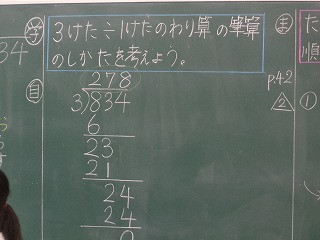 34
学
自
3けた÷1けたのわり算の筆算
のしかたを考えよう。
278
3)834
6
23
21
24
24
0
ま
p42
△2
た
順
①